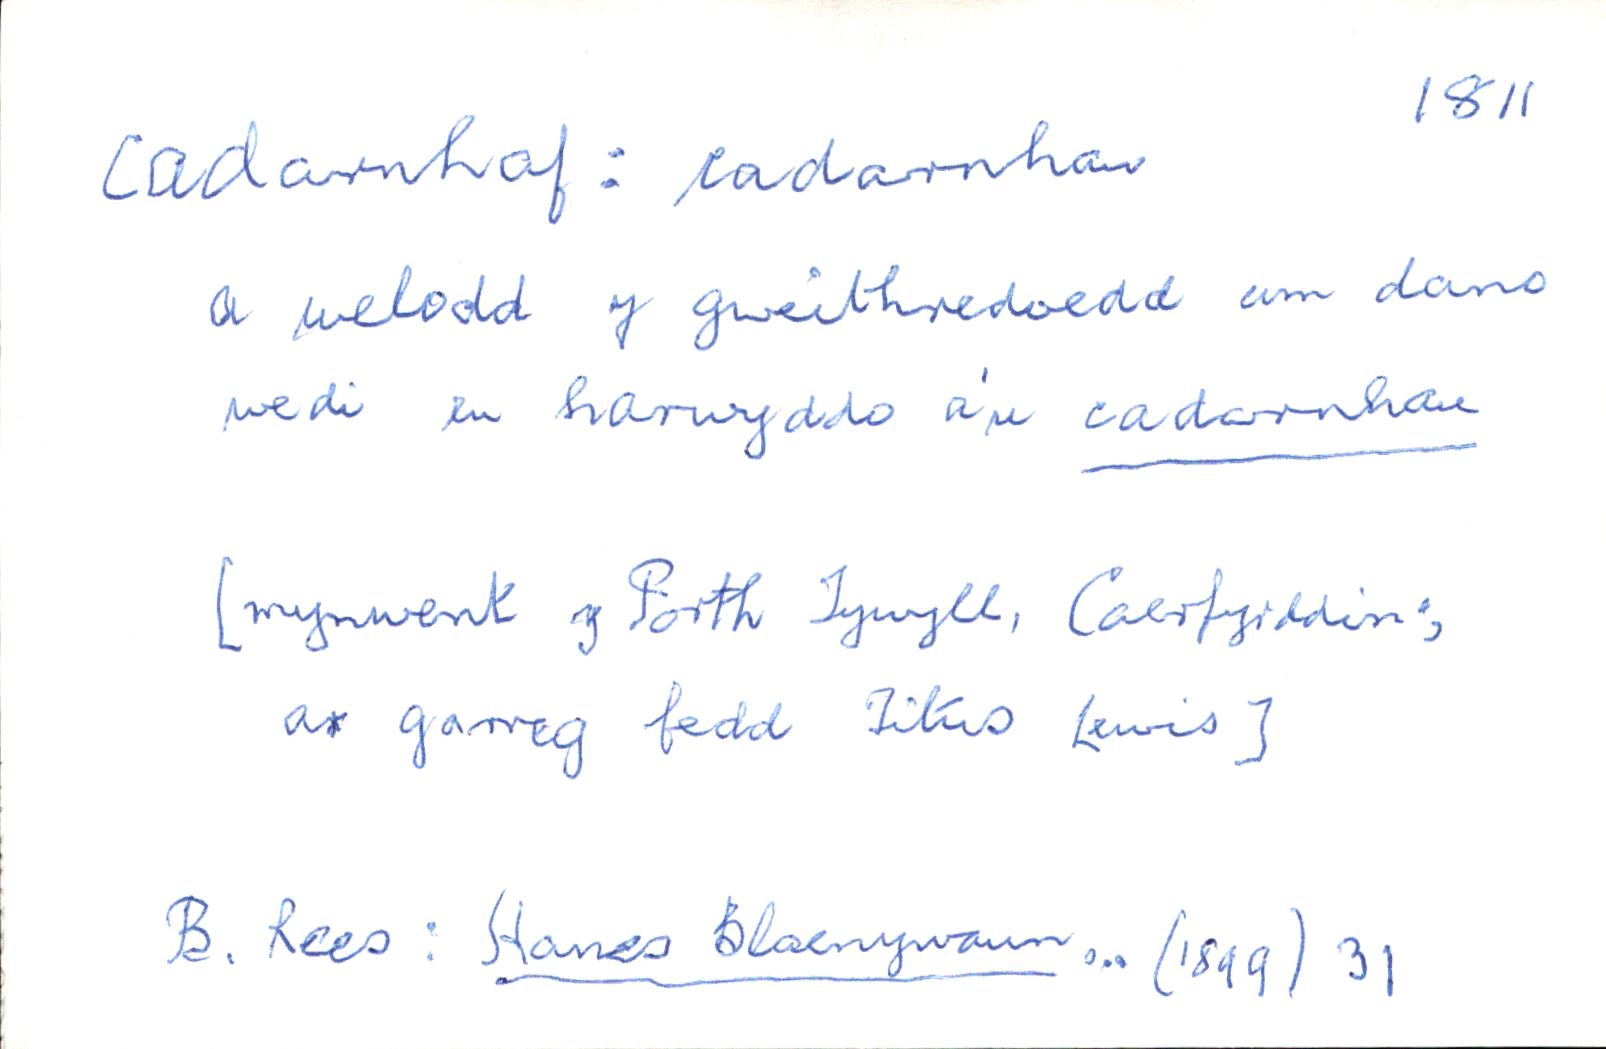 1811
Cadarnhaf: cadarnhau
a welodd y gweithredoedd am dano
wedi eu harwyddo a'u cadarnhau
[mynwent y Porth Tywyll, Caerfyrddin;
ar garreg fedd Titus Lewis]
B. Rees: Hanes Blaenywaun... (1899) 31